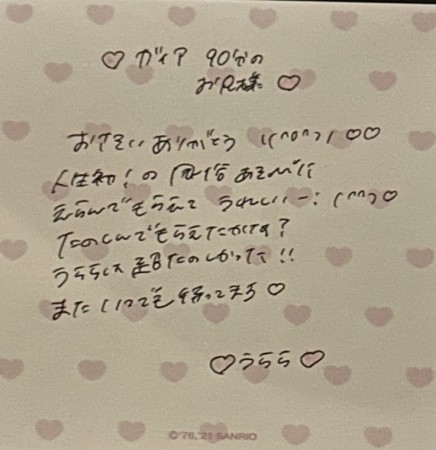 ♡ ガイア 90分の
お兄様 ♡
おてあい ありがとう ((^o^)) ♡♡
人生初！の 風俗 あそびに
えらんでもらえて うれしいー! (^^) ♡
たのしんでもらえたかな？
うららは 超たのしかった!!
また いつでも 待ってまち ♡
♡うらら♡
©'76,'21 SANRIO